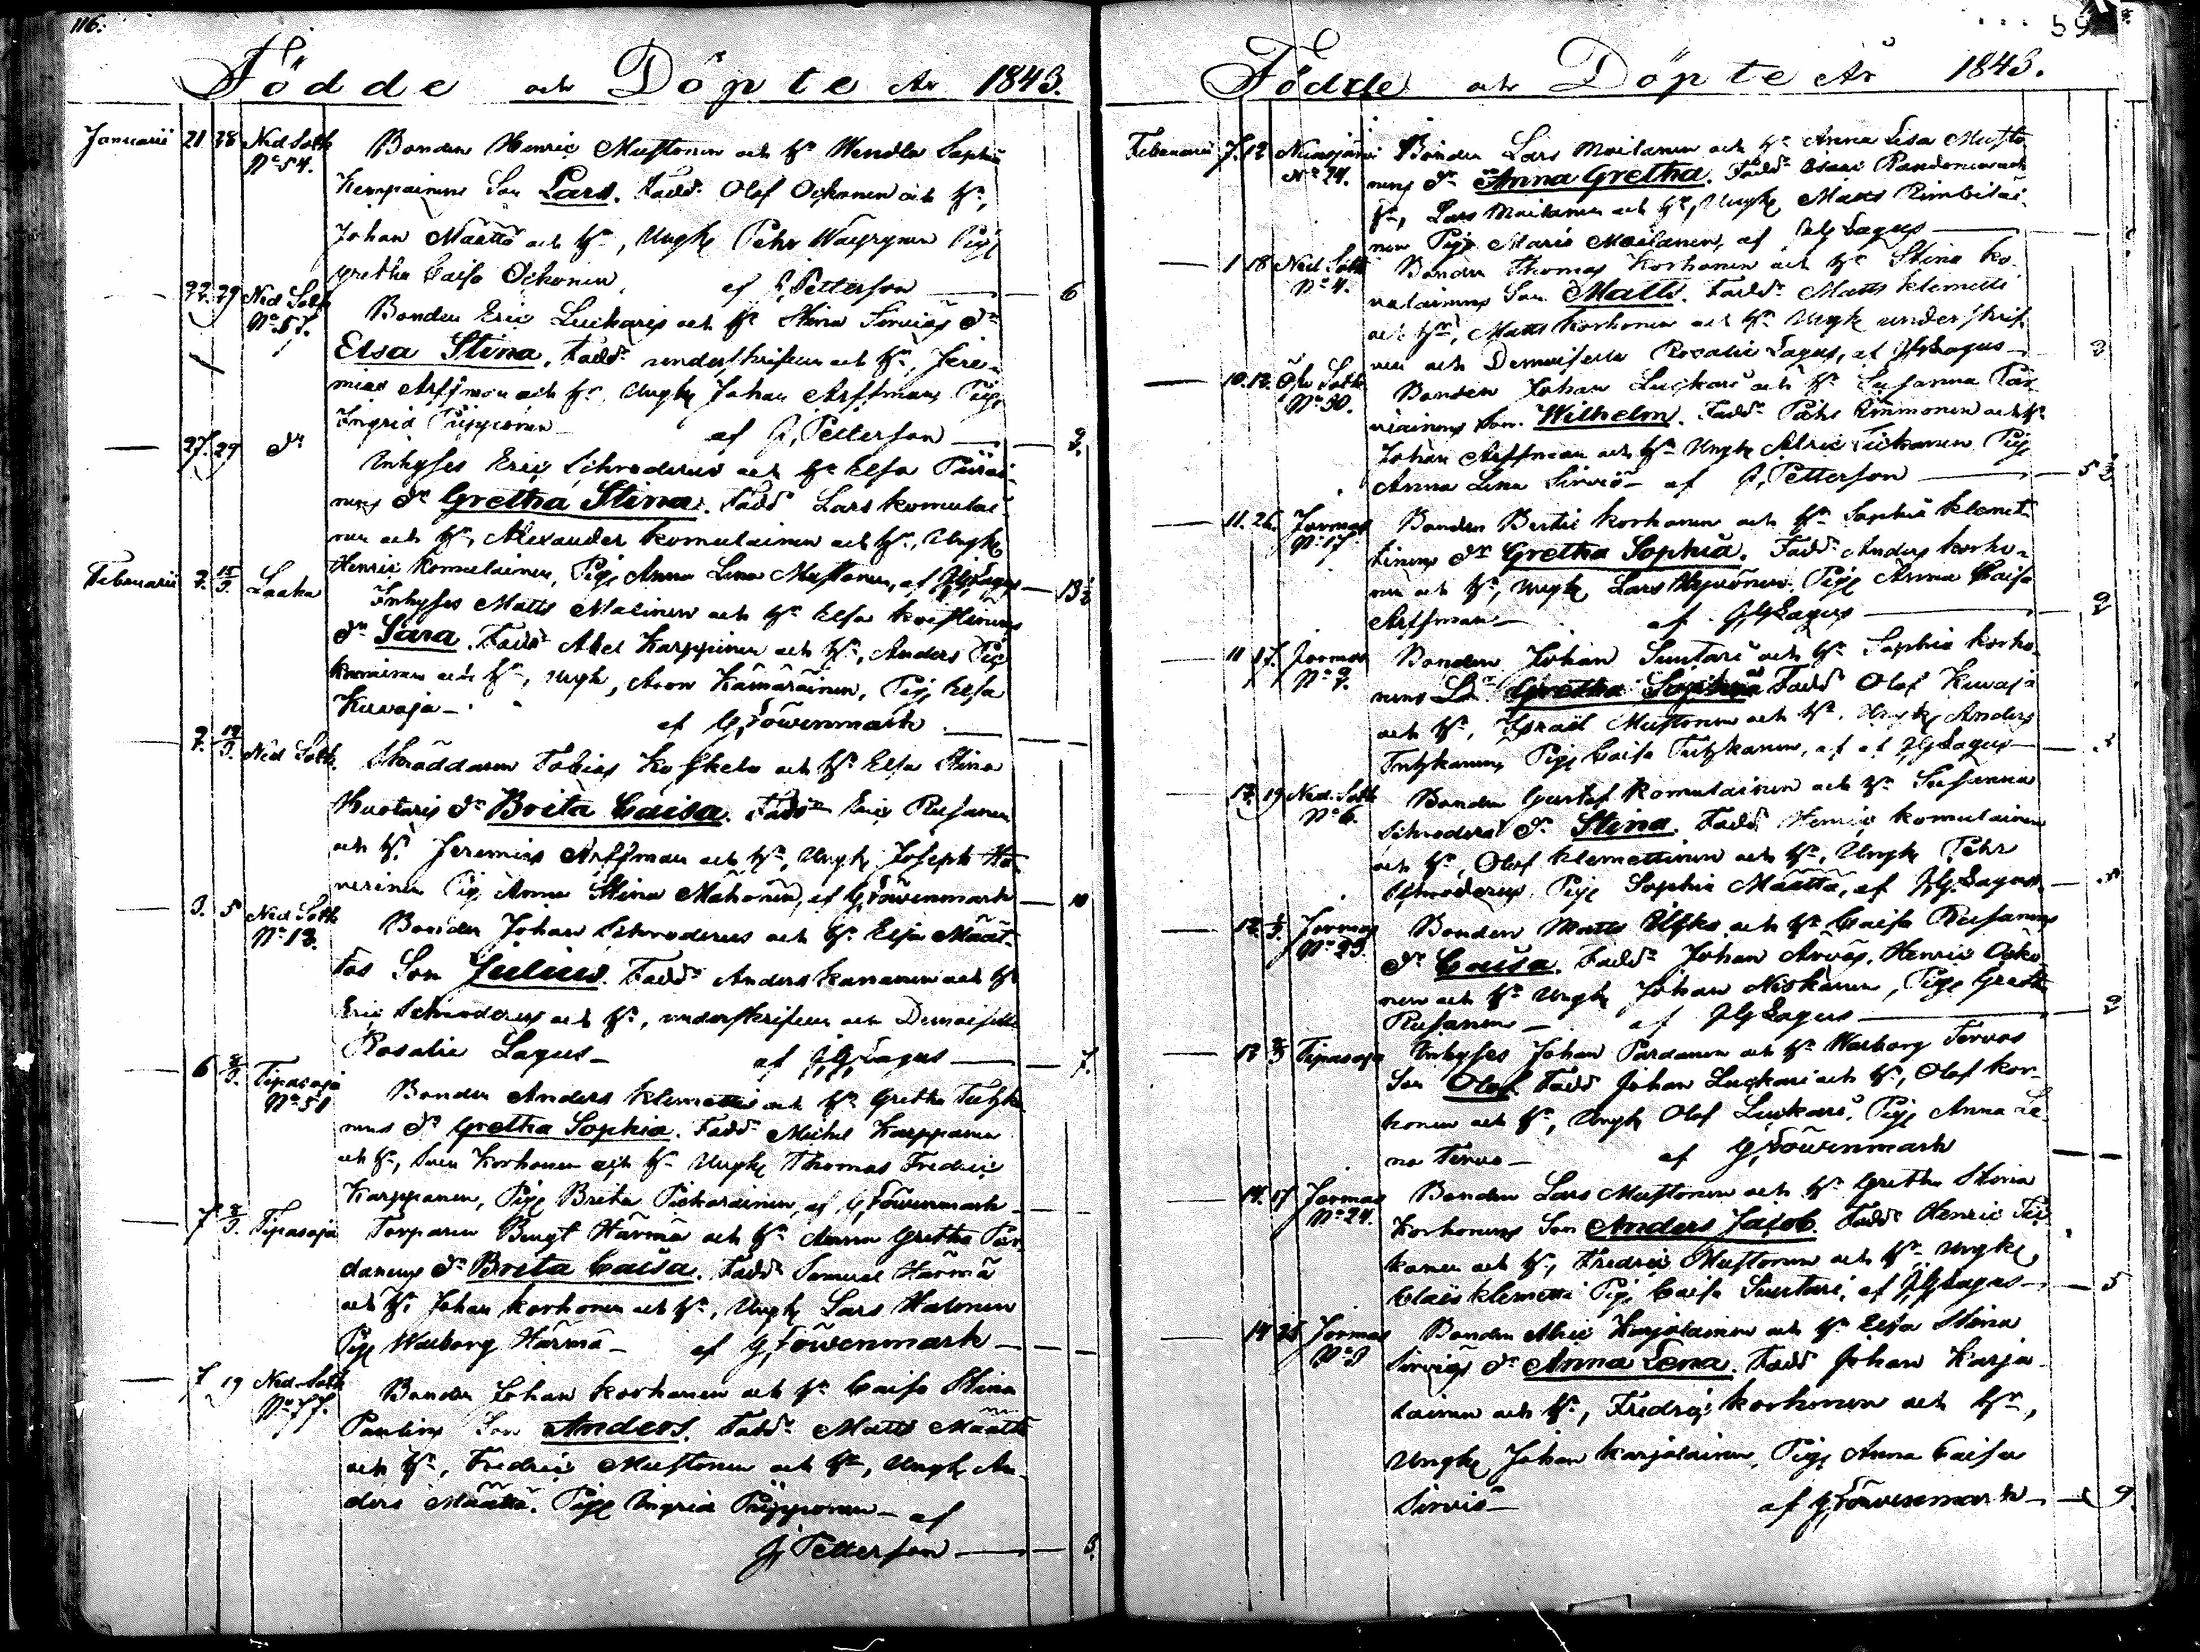 116.
Födde och Döpte År 1843.
Januarii 21 28 Ned Sotk Bonden Henric Mustonen och Hu Hendla Sophia
No 54. Kempainens Son Lars. Fadd. Olof Ockonen och Hu,
Johan Määttä och Hu, Ungk Pehr Wäyrynen Pig
Gretha Caisa Ockonen, af J, Petterson — 6
— 22. 29 Ned Sotk Bonden Eric Luckaris och Hu Stina Sirviös Dr
No 57. Elsa Stina. Fadd underskrifven och Hu, Jere-
mias Arffman och Hu, Ungk Johan Arffman, Pig
Ingrid Piipponen — af J, Petterson — 2
— 27. 29 Do Inhyses Eric Schroderus och Hu Elsa Piirai-
nens Dr Gretha Stina. Fadd Lars Komulai-
nen och Hu, Alexander Komulainen och Hu, Ungk
Henric Komulainen, Pig Anna Lena Mustonen, af JGLagus — 13½
Februarii 2. 15/3. Laaka Inhyses Matts Malinen och Hu Elsa
Dr Sara. Fadd Abel Karppinen och Hu, Anders
och Hu, Ungk, Aron Kämäräinen, Pig Elsa
Kuvaja — af G, Löwenmark —
2. 19/3. Ned Sotk. Skräddaren Tobias Koskelo och Hu Elsa Stina
Huotaris Dr Brita Caisa. Fadd Eric Rusanen
och Hu Jeremias Arffman och Hu, Ungk Joseph Ha-
verinen Pig Anna Stina Mähönen, af G, Löwenmark — 10
— 3. 5 Ned Sotk Bonden Johan Schroderus och Hu Elsa Määt-
No 13. täs Son Julius. Fadd Anders Kananen och Hu
Eric Schroderus och Hu, underskrifven och Demoiselle
Rosalie Lagus — af J,G, Lagus — 7.
— 6 Tipasoja Bonden Anders Klemettis och Hu Gretha Tutzka-
No 51 nens Dr Gretha Sophia. Fadd Michel Karppanen
och Hu, Sven Korhonen och Hu Ungk Thomas Fredric
Karppanen, Pig Brita Pickarainen, af G, Löwenmark —
— 7 Tipasoja Torparen Bengt Härmä och Hu Anna Gretha Par-
danens Dr Brita Caisa. Fadd Samuel Härmä
och Hu Johan Korhonen och Hu, Ungk Lars Halonen
Pig Walborg Härmä — af G, Löwenmark —
— 7 19 Ned Sotk Bonden Johan Korhonen och Hu Caisa Stina
No 77. Paulins Son Anders. Fadd Matts Määttä
och Hu, Fredric Mustonen och Hu, Ungk An-
ders Määttä. Pig Ingrid Piipponen — af
J, Petterson —
59
Födde och Döpte År 1843.
Februarii 7. 12 Nuasjärvi Bonden Lars Moilanen och Hu Anna Lisa Musto
No 24. nens Dr Anna Gretha. Fadd och
Hu, Lars Moilanen och Hu, Ungk Matts Rimbiläi-
nen Pig Maria Moilanen, af JGLagus —
— 1 18 Ned Sotk Bonden Thomas Korhonen och Hu Stina Ko-
No 4. valainens Son Matts. Fadd Matts Klemetti
och Hu, Matts Korhonen och Hu Ungk underskrif-
ven och Demoiselle Rosalie Lagus, af JGLagus —
— 10. 12. Öfv Sotk Bonden Johan Luckari och Hu Susanna Par-
No 30. viainens Son. Wilhelm. Fadd Pehr Immonen och Hu
Johan Arffman och Hu Ungk Alric Tickanen Pig
Anna Lena Sirviö — af J, Petterson — 5½
— 11. 26. Jormas Bonden Bertil Korhonen och Hu Sophia Klemet-
No 17 tinens Dr Gretha Sophia. Fadd Anders Korho-
nen och Hu, Ungk Lars Hyvönen Pig Anna Caisa
Arffman — af JGLagus — 2
— 11 17. Jormas Bonden Johan Suutari och Hu Sophia Korho-
No 9. nens Fadd Olof Kuvaja
och Hu, Israel Mustonen och Hu. Ungk Anders
Tutzkanen, Pig Caisa Tutzkanen, af af JGLagus —
— 12. 19 Ned. Sotk Bonden Gustaf Komulainen och Hu Susanna
No 6. Schroderus Dr Stina Fadd Henric Komulainen
och Hu, Olof Klemettinen och Hu, Ungk Pehr
Schroderus Pig Sophia Määttä, af J,G,Lagus —
— 12. Jormas Bonden Matts och Hu Caisa Rusanens
No 23. Dr Caisa. Fadd Johan Henric Ocko-
nen och Hu Ungk Johan Niskanen, Pig Gretha
Rusanen — af JGLagus — 2
— 13 Tipasoja Inhyses Johan Pardanen och Hu Warborg Tervos
Son Olof Fadd Johan Luckari och Hu, Olof Kor-
honen och Hu, Ungk Olof Luckari, Pig Anna Le-
na Tervo — af G, Löwenmark —
— 14. 17 Jormas Bonden Lars Mustonen och Hu Gretha Stina
No 24. Korhonens Son Anders Jacob. Fadd Henric Tic-
kanen och Hu, Fredric Mustonen och Hu Ungk,
Claës Klemetti Pig Caisa Suutari, af JGLagus — 5
— 14 25 Jormas Bonden Alric Karjalainen och Hu Elsa Stina
No 3 Sirviös Dr Anna Lena. Fadd Johan Karja-
lainen och Hu, Fredric Korhonen och Hu,
Ungk, Johan Karjalainen, Pig Anna Caisa
Sirviö — af G, Löwenmark — 9.